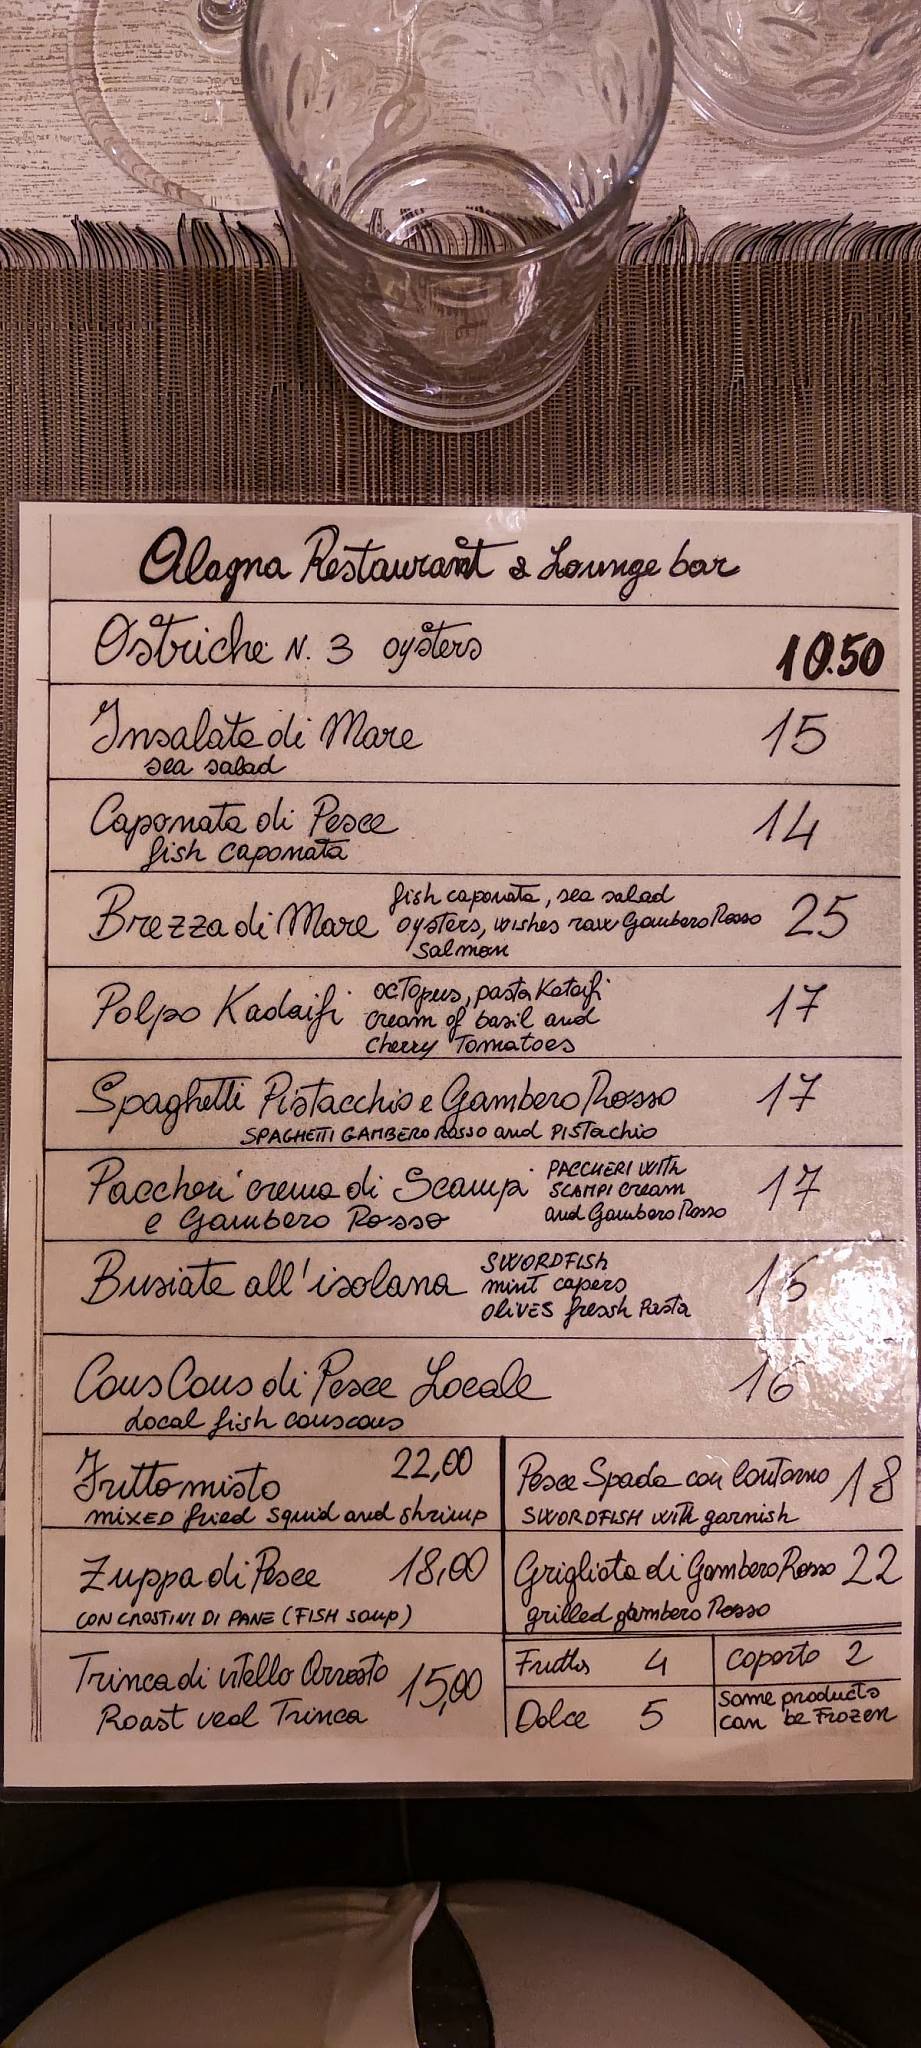 Alagna Restaurant & Lounge bar
Ostriche N. 3 oysters 10.50
Insalata di Mare 15
sea salad
Caponata di Pesce 14
fish caponata
Brezza di Mare 25
fish caponata, sea salad
oysters, wishes raw Gambero Rosso
Salmon
Polpo Kadaifi 17
octopus, pasta Kataifi
cream of basil and
Cherry Tomatoes
Spaghetti Pistacchio e Gambero Rosso 17
SPAGHETTI GAMBERO ROSSO and PISTachio
Paccheri crema di Scampi 17
e Gambero Rosso
PACCHERI WITH
SCAMPI cream
and Gambero Rosso
Busiate all'isolana
SWORDFISH
mint capers
OLIVES fressh Pasta
Cous Cous di Pesce Locale 16
Local fish couscous
Fritto misto 22,00
MIXED fried squid and shrimp
Pesce Spada con Contorno 18
SWORDFISH with garnish
Zuppa di Pesce 18,00
CON CROSTINI DI PANE (FISH soup)
Grigliata di Gambero Rosso 22
grilled gambero Rosso
Trinca di vitello Arrosto 15,00
Roast veal Trinca
4
coperto 2
Dolce 5
Some products
can be Frozen